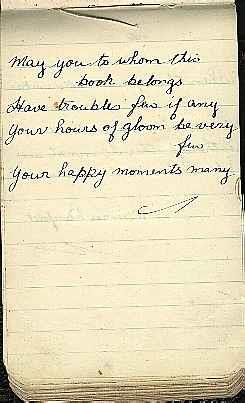 May you to whom this
book belongs
Have troubles few if any
Your hours of gloom be very
few
Your happy moments many